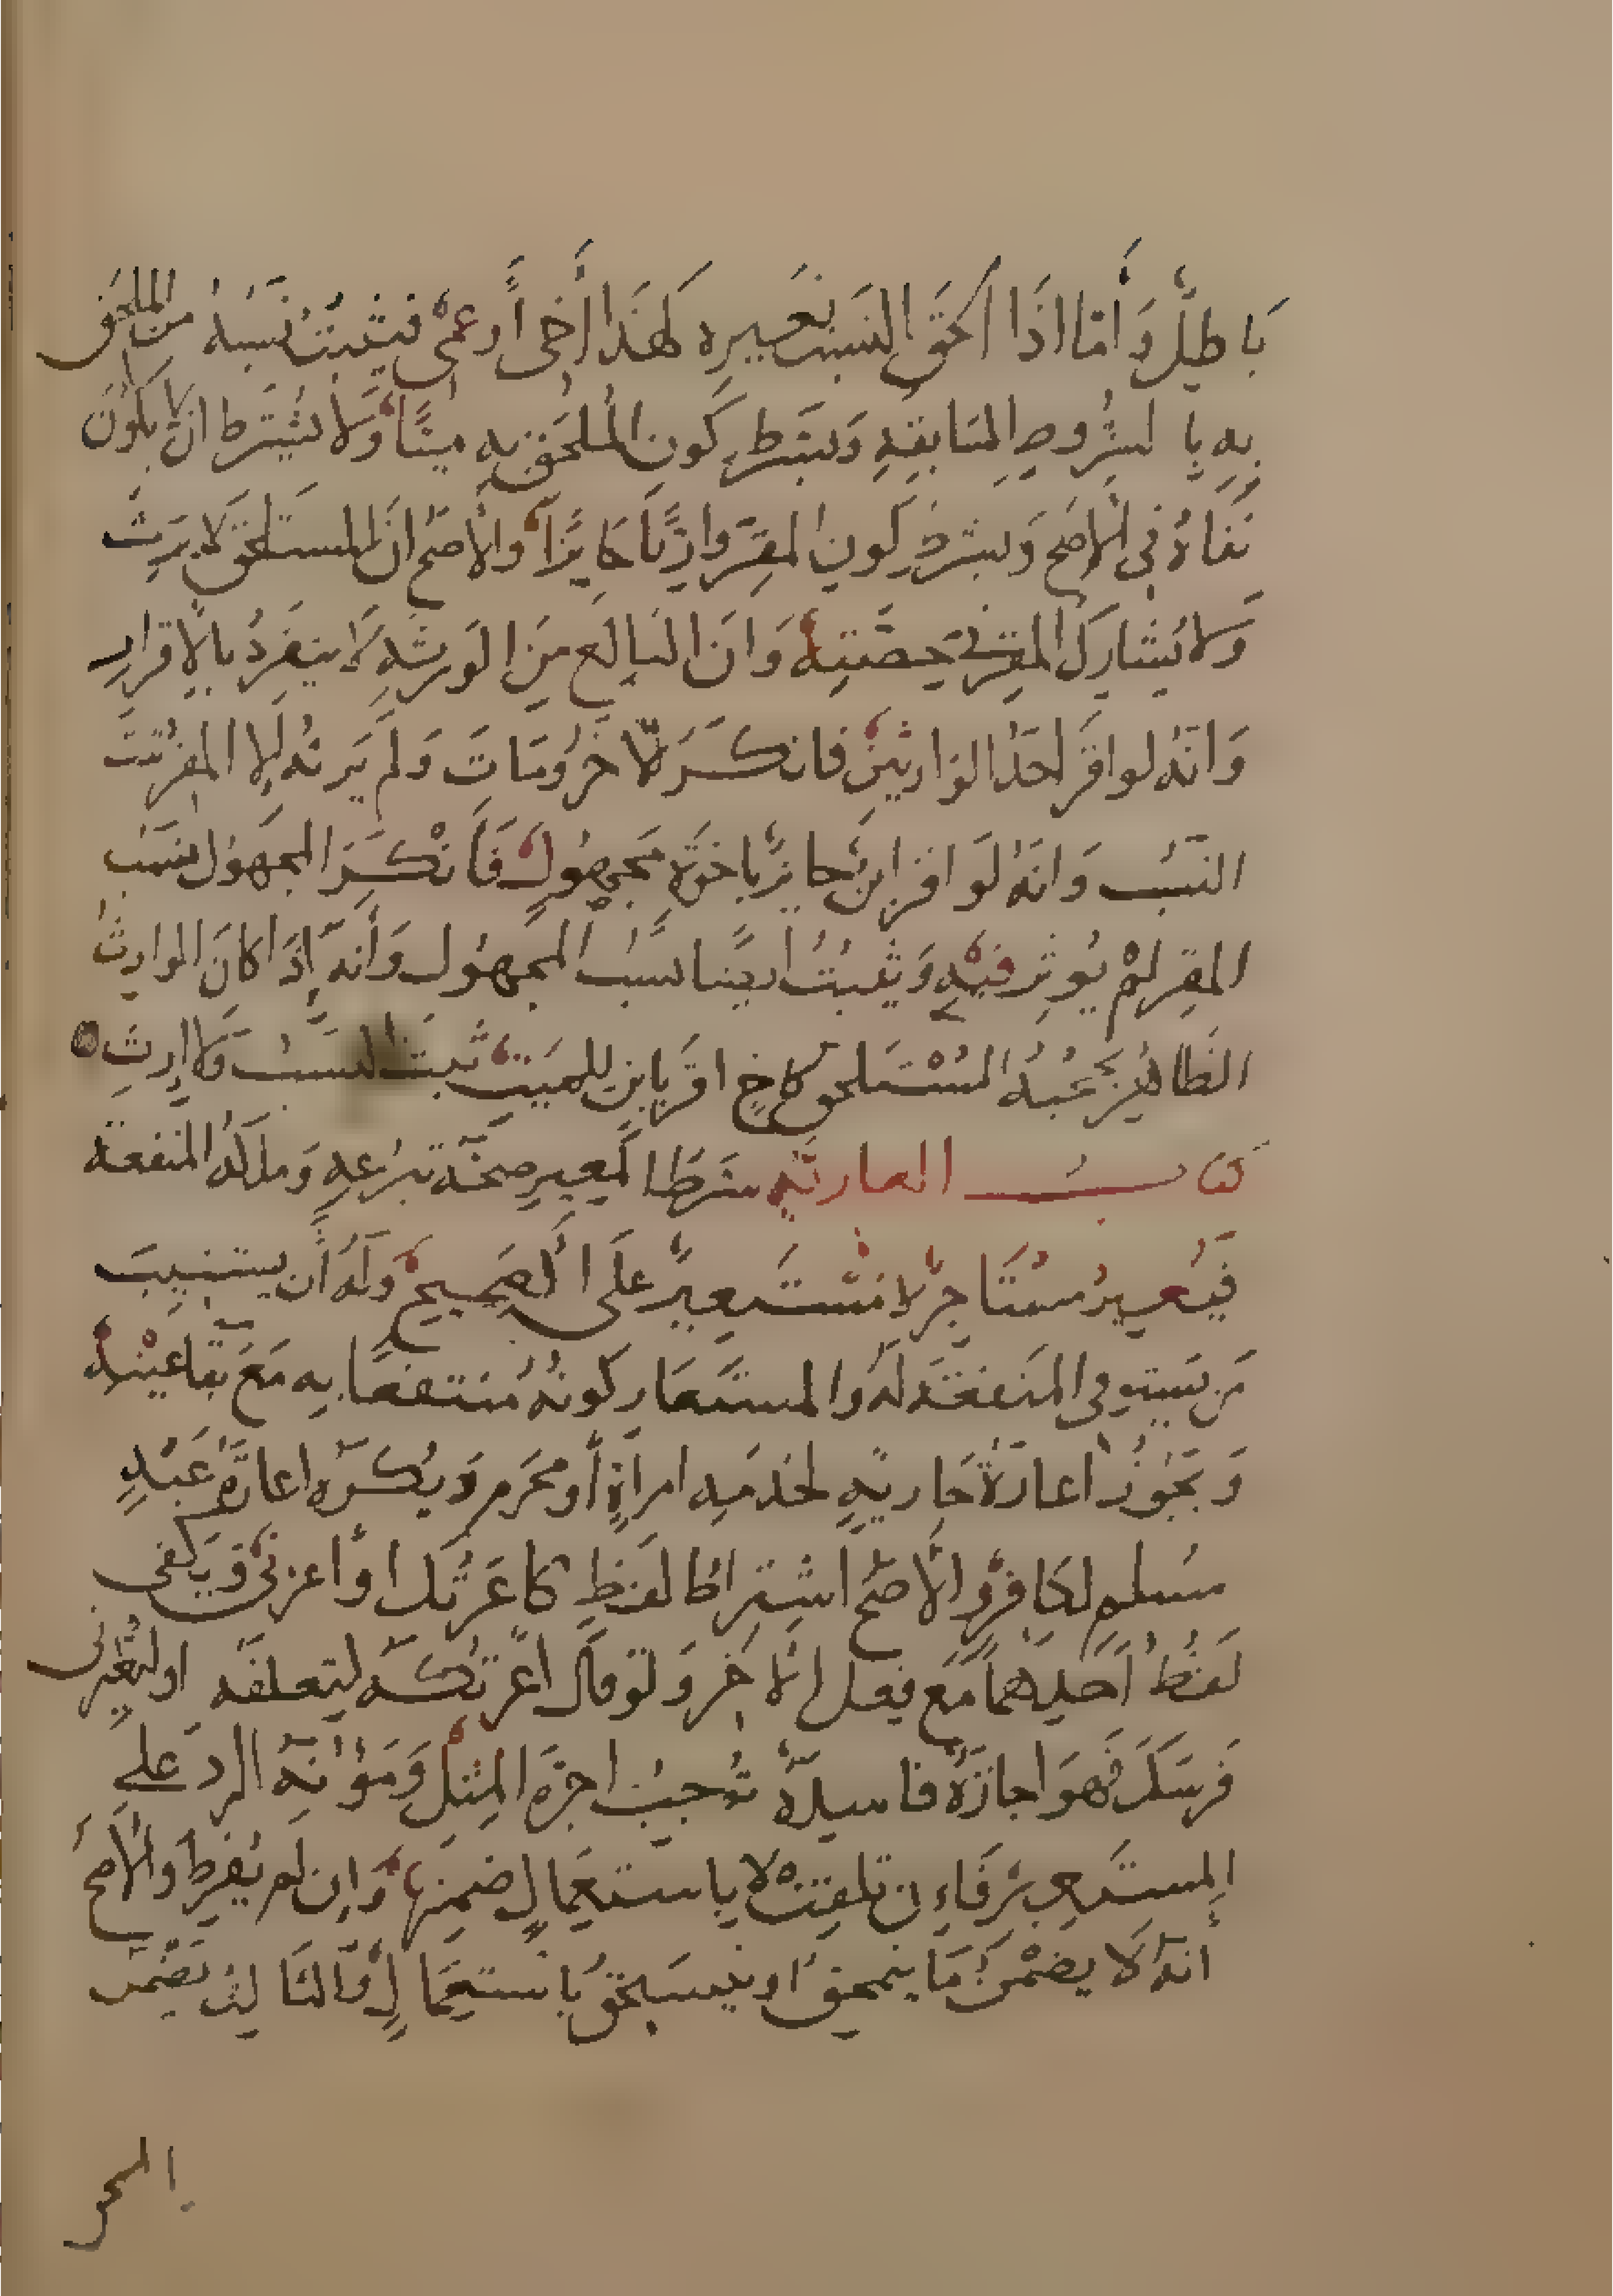 باطل وأما اذا ألحق النسب بغيره كهذا أخي أو عمي فيثبت نسبه من الملحق
به بالشروط السابقة ويشترط كون الملحق به ميتا ولا يشترط ان لا يكون
نفاه في الأصح ويشترط كون المقر وارثا حايزا والأصح ان المستلحق لا يرث
ولا يشارك المقر في حصته وان البالغ من الورثة لا ينفرد بالإقرار
وانه لو اقر احد الوارثين فانكر الآخر ومات ولم يرثه إلا المقر ثبت
النسب وانه لو اقر ابن حايز باخوة مجهول فأنكر المجهول نسب
المقر لم يوثر فيه ويثبت ايضا نسب المجهول وأنه إذا كان الوارث
الظاهر يحجبه المستلحق كاخ اقر بابن للميت ثبت النسب ولا ارث
كتاب العارية شرط المعير صحة تبرعه وملكه المنفعة
فيعير مستاجر لا مستعير على الصحيح وله أن يستنيب
من يستوفي المنفعة له والمستعار كونه منتفعا به مع بقا عينه
وتجوز اعارة جارية لخدمة امراة أو محرم ويكره اعارة عبد
مسلم لكافر والأصح اشتراط لفظ كاعرتك او أعرني ويكفي
لفظ أحدهما مع فعل الآخر ولو قال اعرتكه لتعلفه او لتعيرني
فرسك فهو اجارة فاسدة توجب اجرة المثل ومؤنة الرد على
المستعير فإن تلفت لا باستعمال ضمنها وإن لم يفرط والأصح
أنه لا يضمن ما ينمحق او ينسحق باستعمال والثالث يضمن
المنمحق